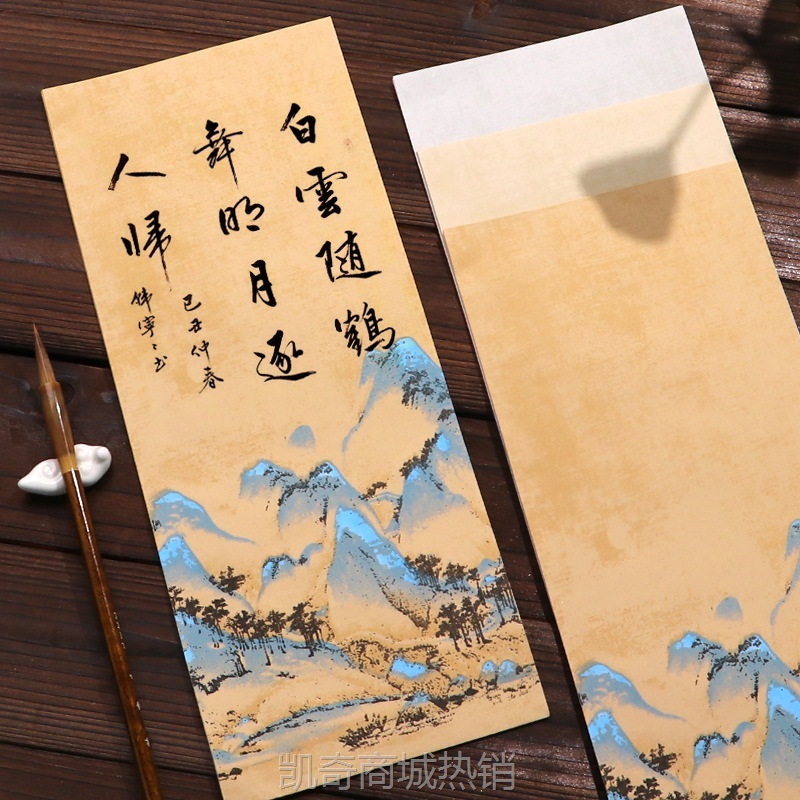 白雲随鶴
舞明月逐
人归
己丑仲春
凯奇商城热销